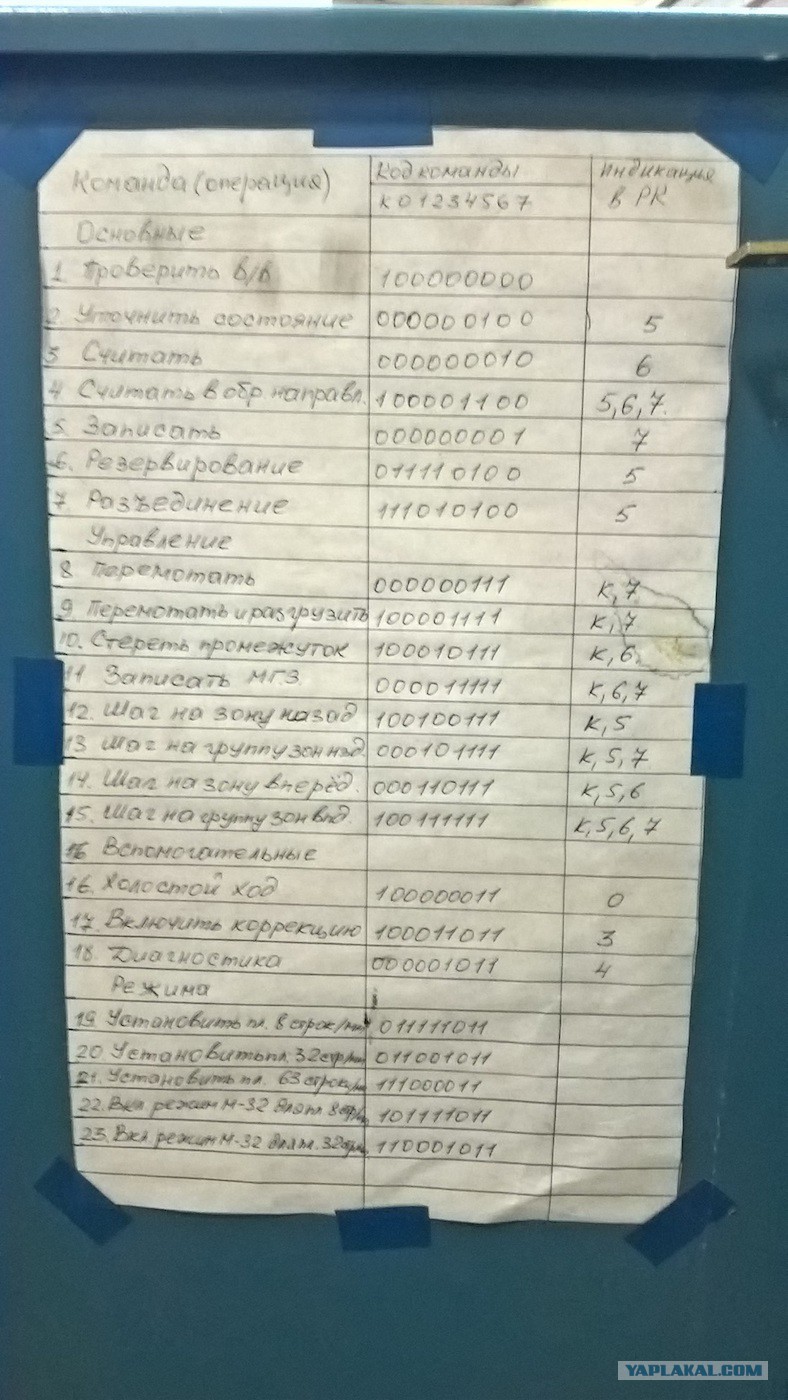 Команда (операция) Код команды Индикация
К 0 1 2 3 4 5 6 7 в РК
Основные
1. Проверить в/в 100000000
2. Уточнить состояние 000000100 5
3 Считать 000000010 6
4 Считать в обр. направл. 100001100 5,6,7.
5. Записать 000000001 7
6. Резервирование 011110100 5
7. Разъединение 111010100 5
Управление
8. Перемотать 000000111 К, 7
9. Перемотать и разгрузить 100001111 К, 7
10. Стереть промежуток 100010111 К, 6
11 Записать МГЗ 000011111 К, 6, 7
12. Шаг на зону назад 100100111 К, 5
13 Шаг на группу зон нзд. 000101111 К, 5, 7
14. Шаг на зону вперёд. 000110111 К, 5, 6
15. Шаг на группу зон впд. 100111111 К, 5, 6, 7
Вспомогательные
16. Холостой ход 100000011 0
17. Включить коррекцию 100011011 3
18. Диагностика 000001011 4
Режима
19. Установить пл. 8 строк/мм 011111011
20. Установить пл. 32 стр/мм 011001011
21. Установить пл. 63 строк/мм 111000011
22. Вкл. режим М-32 для пл. 8 101111011
23. Вкл. режим М-32 для пл. 32 110001011
YAPLAKAL.COM